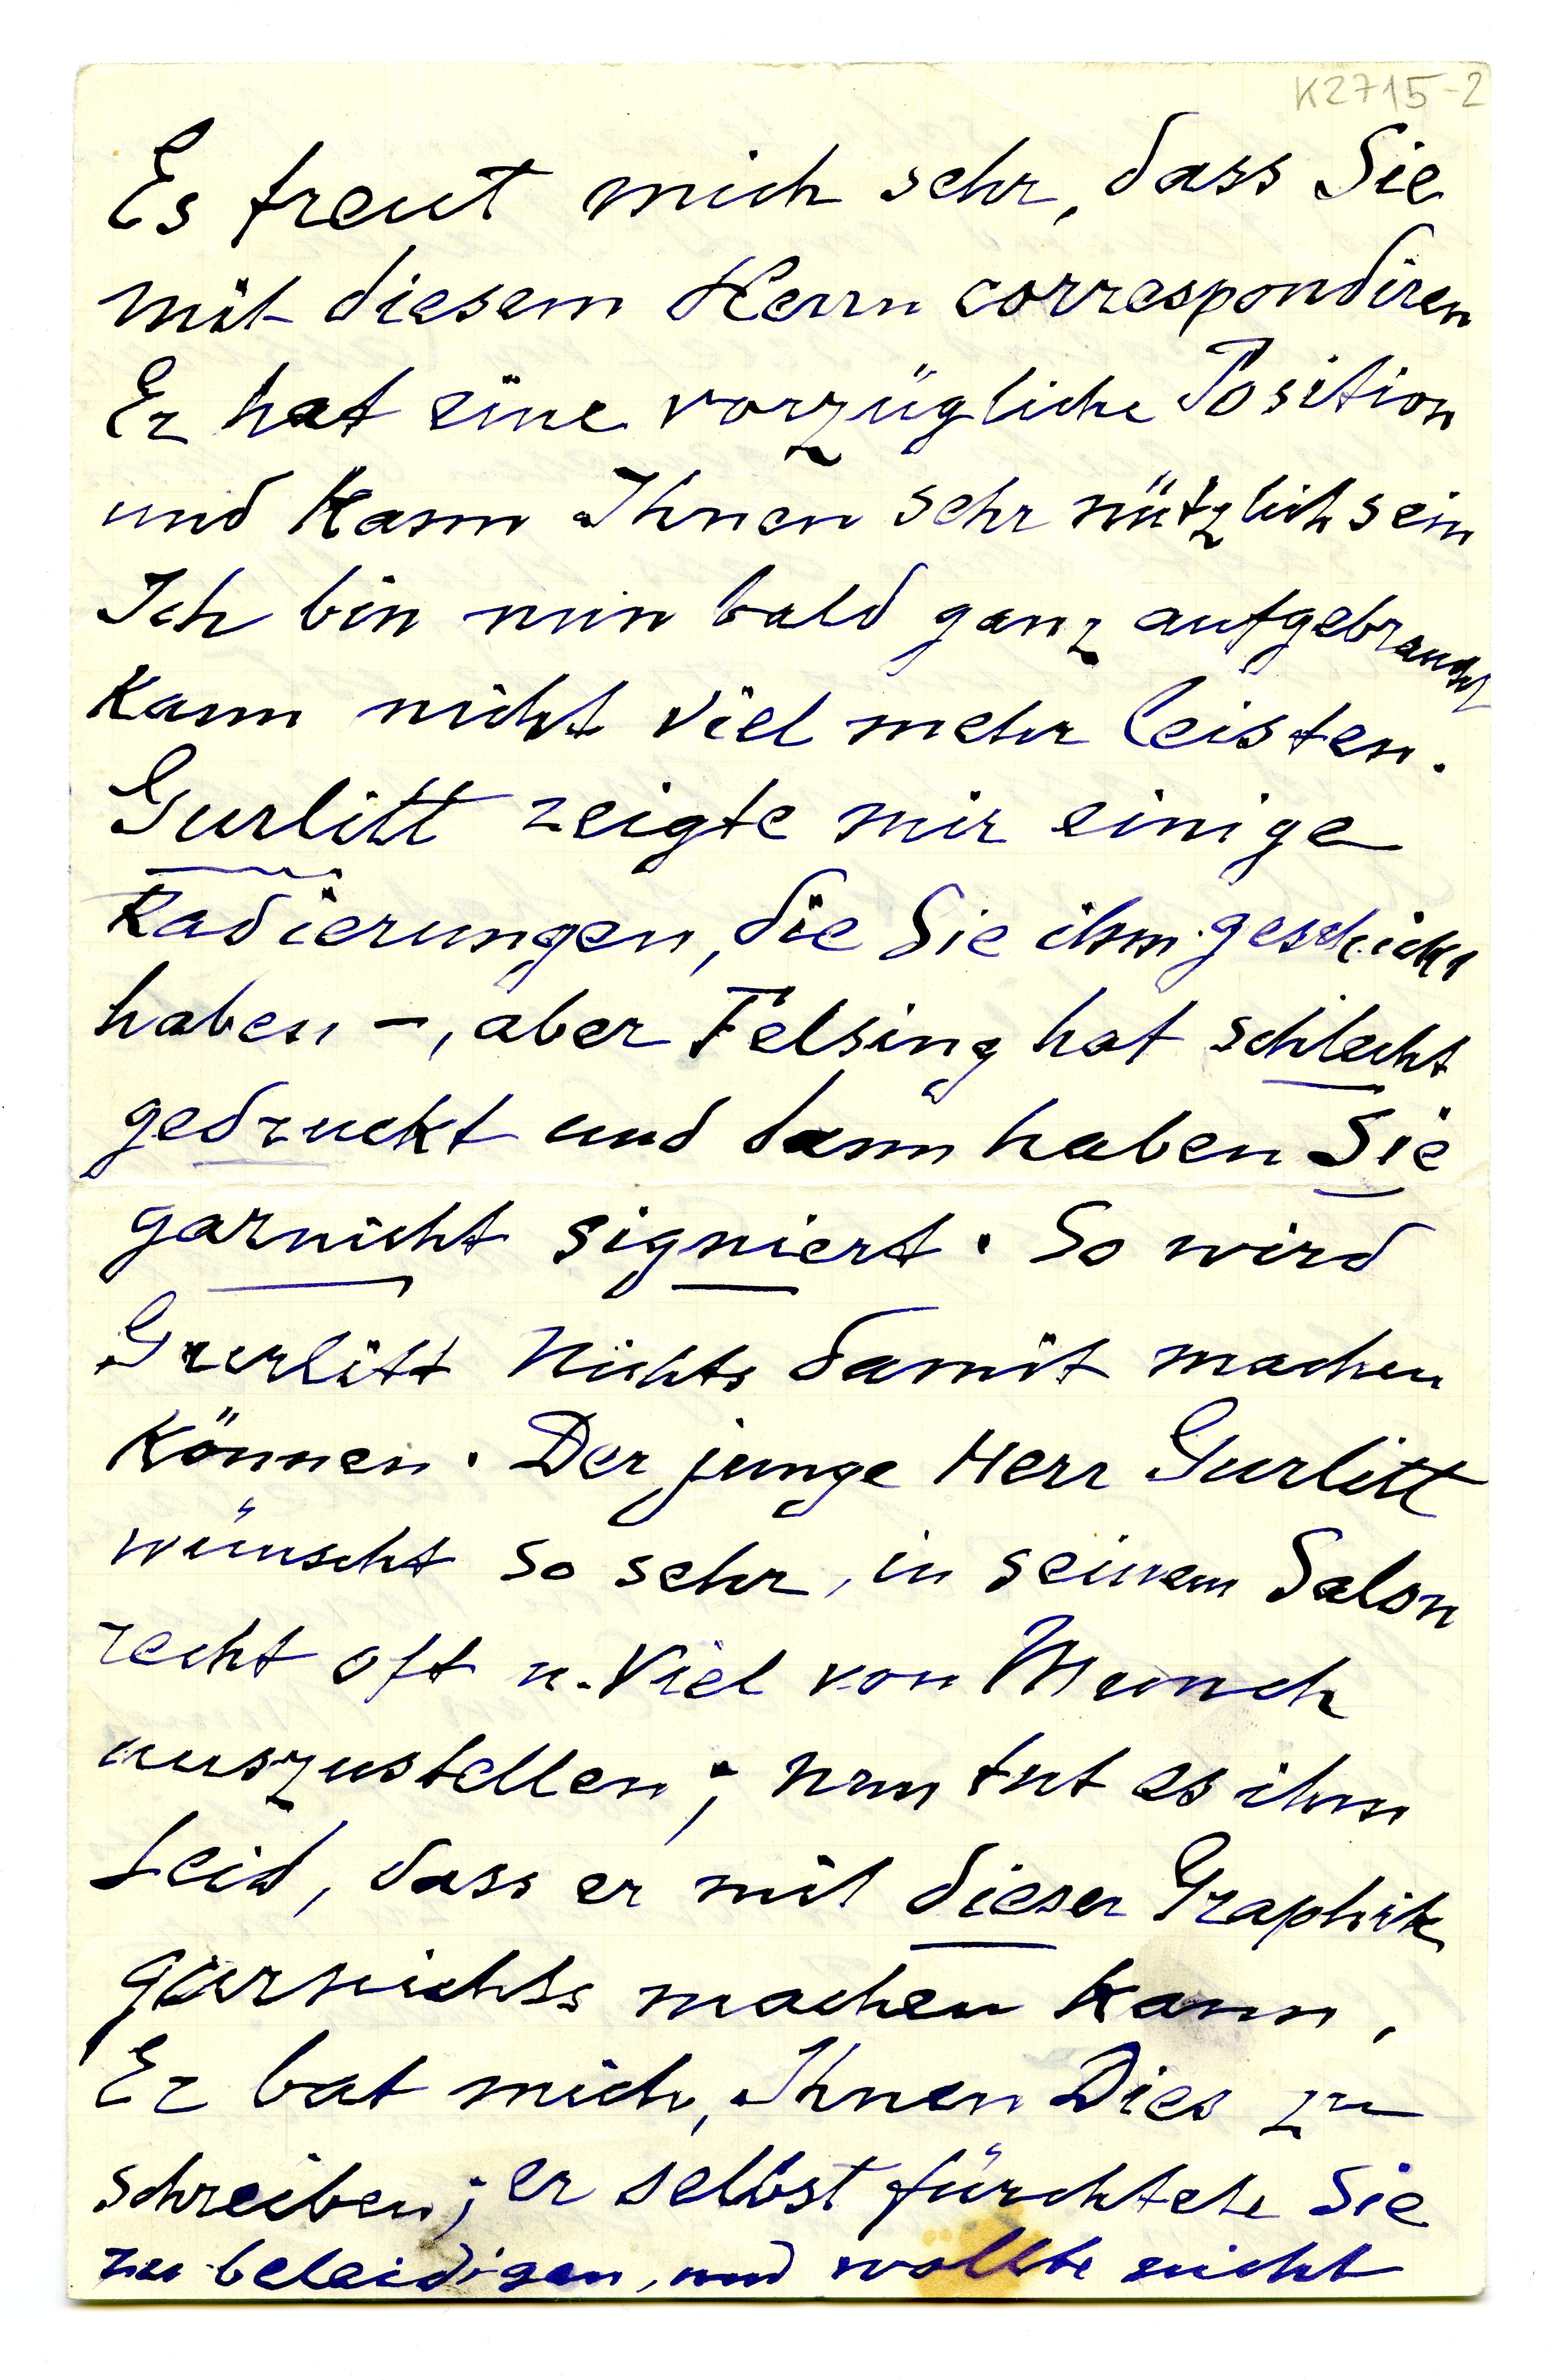 K2715-2
Es freut mich sehr, dass Sie
mit diesem Herrn correspondiren
Er hat eine vorzügliche Position
und Kann Ihnen sehr nützlich sein
Ich bin nun bald ganz aufgebraucht
Kann nicht viel mehr leisten.
Gurlitt zeigte mir einige
Radierungen, die Sie ihm geschickt
haben –, aber Felsing hat schlecht
gedruckt und dann haben Sie
garnicht signiert. So wird
Gurlitt Nichts damit machen
Können. Der junge Herr Gurlitt
wünscht so sehr, in seinem Salon
recht oft u. Viel von Munch
auszustellen; nun tut es ihm
Leid, dass er mit dieser Graphik
garnichts machen Kann,
Er bat mich, Ihnen Dies zu
schreiben; er selbst fürchtete Sie
zu beleidigen, und wollte nicht